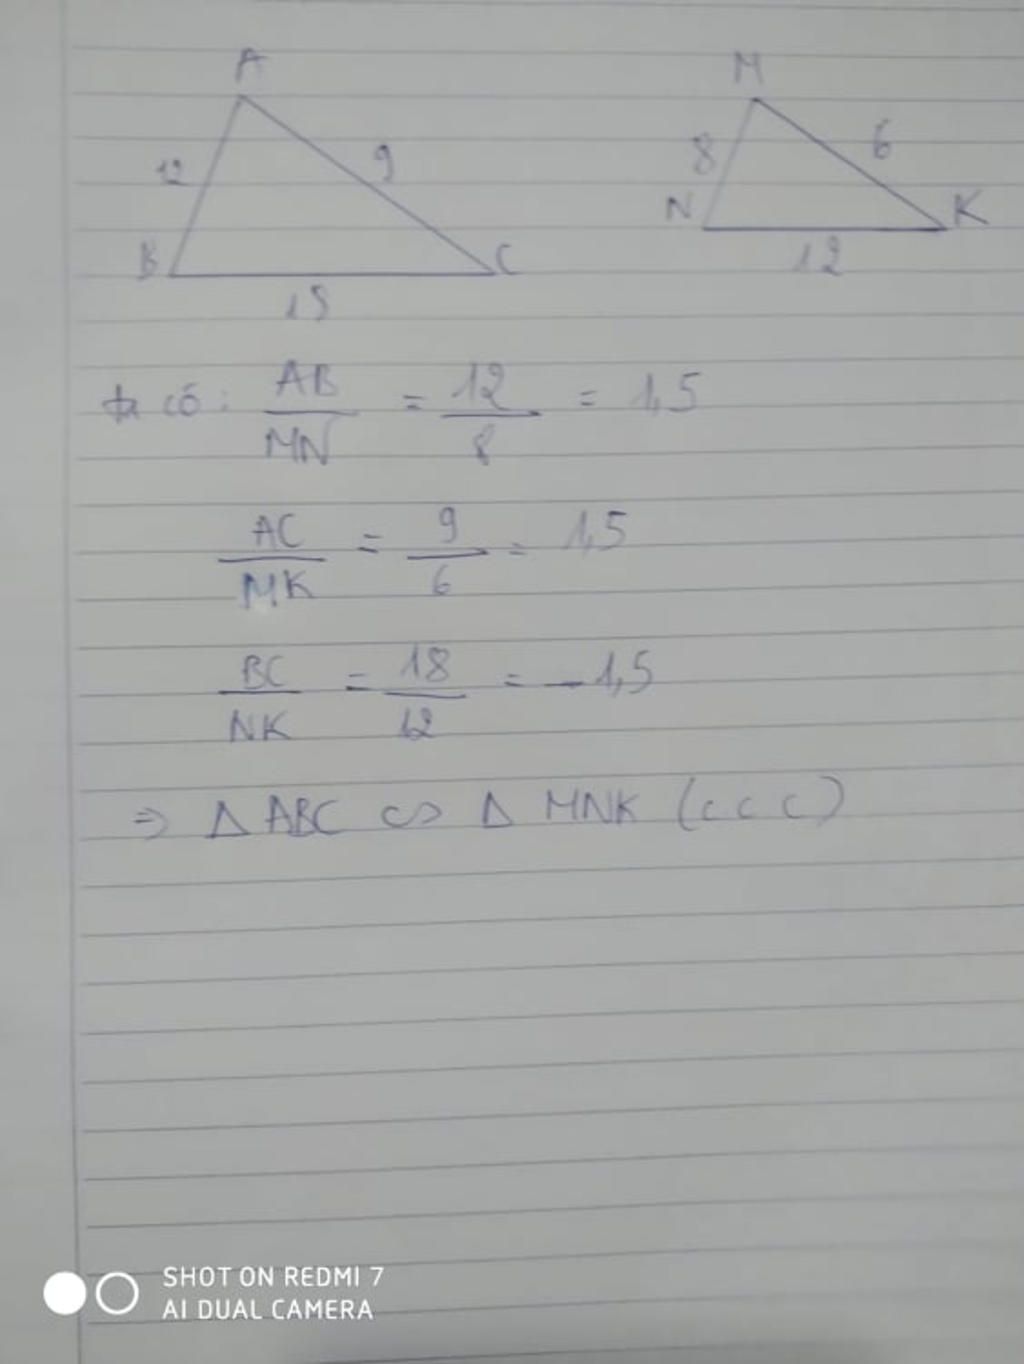 A
M
12
9
8
6
B
C
N
K
18
12
ta có: AB/MN = 12/8 = 1,5
AC/MK = 9/6 = 1,5
BC/NK = 18/12 = -1,5
⇒ Δ ABC ∽ Δ MNK (c c c)
SHOT ON REDMI 7
AI DUAL CAMERA